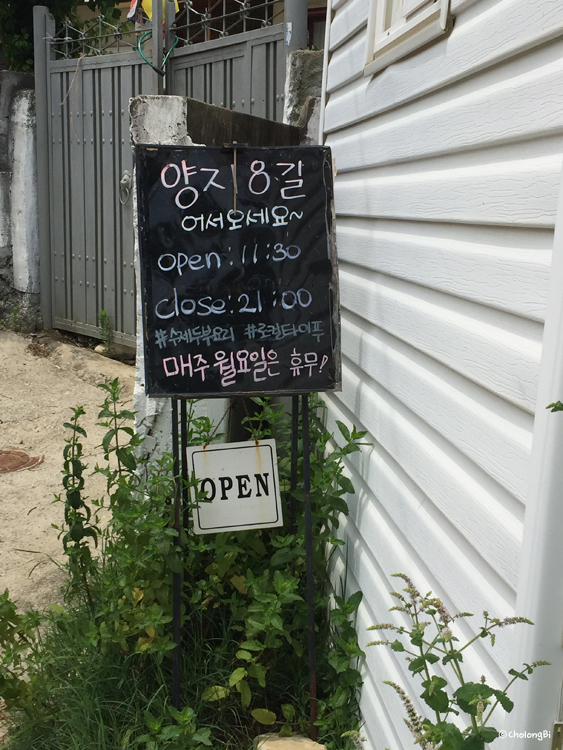 양지8길
어서오세요~
open:11:30
close:21:00
#수제두부요리 #로컬타이푸
매주 월요일은 휴무!
OPEN
©CholongBi